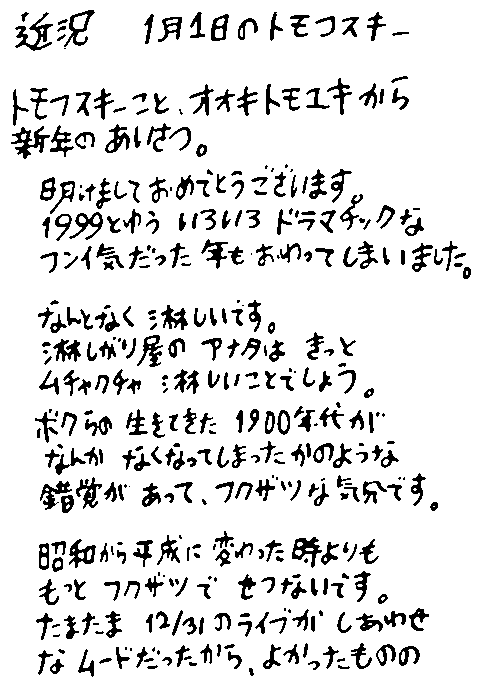 近況　1月1日のトモフスキー
トモフスキーこと、オオキトモユキから
新年のあいさつ。
明けましておめでとうございます。
1999とゆう いろいろ ドラマチックな
フンイ気だった 年も おわってしまいました。
なんとなく 淋しいです。
淋しがり屋の アナタは きっと
ムチャクチャ 淋しいことでしょう。
ボクらの 生きてきた 1900年代が
なんか なくなってしまったかのような
錯覚が あって、フクザツな気分です。
昭和から平成に 変わった時よりも
もっと フクザツで せつないです。
たまたま 12/31のライブが しあわせ
な ムードだったから、よかったものの